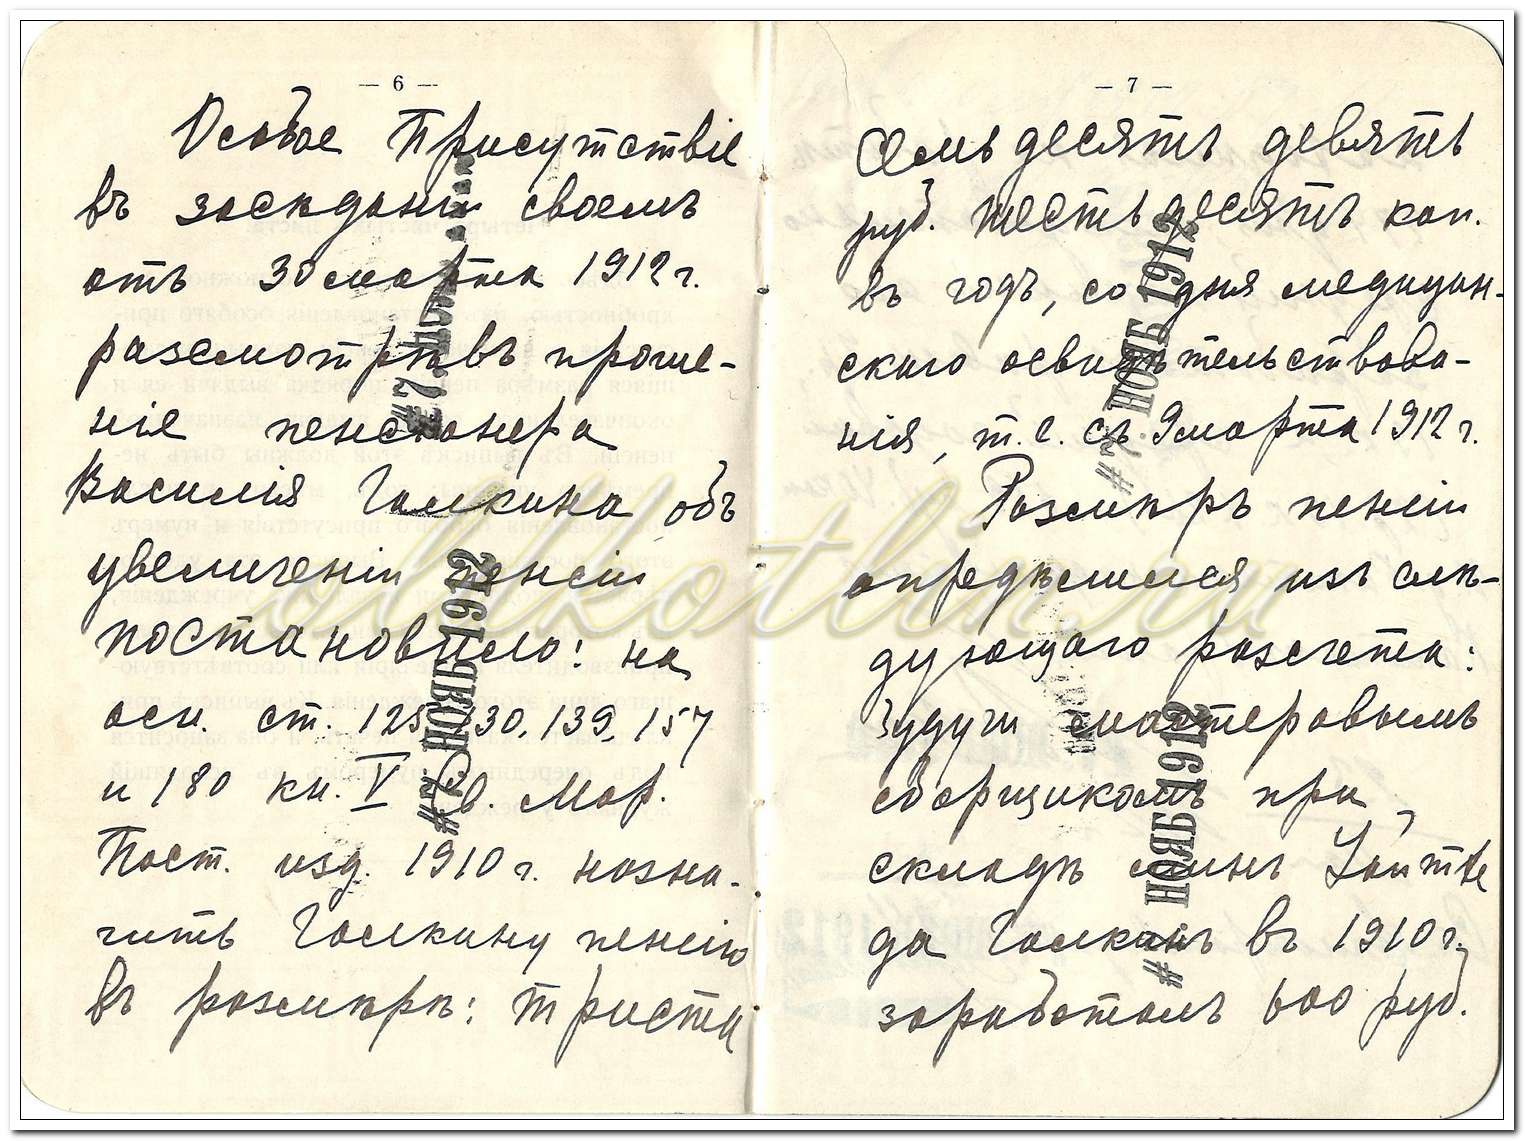 — 6 —
Особое Присутствіе
въ засѣданіи своемъ
отъ 30 марта 1912 г.
разсмотрѣвъ проше-
ніе пенсіонера
Василія Галкина объ
увеличеніи пенсіи
постановило: на
осн. ст. 125, 130, 139, 157
и 180 кн. V Св. Мор.
Пост. изд. 1910 г. назна-
чить Галкину пенсію
въ размѣрѣ: триста
#7. НОЯБ 1912
— 7 —
семьдесятъ девять
руб. шестьдесятъ коп.
въ годъ, со дня медицин-
скаго освидѣтельствова-
нія, т. е. съ 9 марта 1912 г.
Размѣръ пенсіи
опредѣлился изъ слѣ-
дующаго разсчета:
будучи мастеровымъ
сборщикомъ при
складѣ минъ
да Галкинъ въ 1910 г.
заработалъ 600 руб.
НОЯБ 1912
НОЯБ 1912
olhkotlin.ru